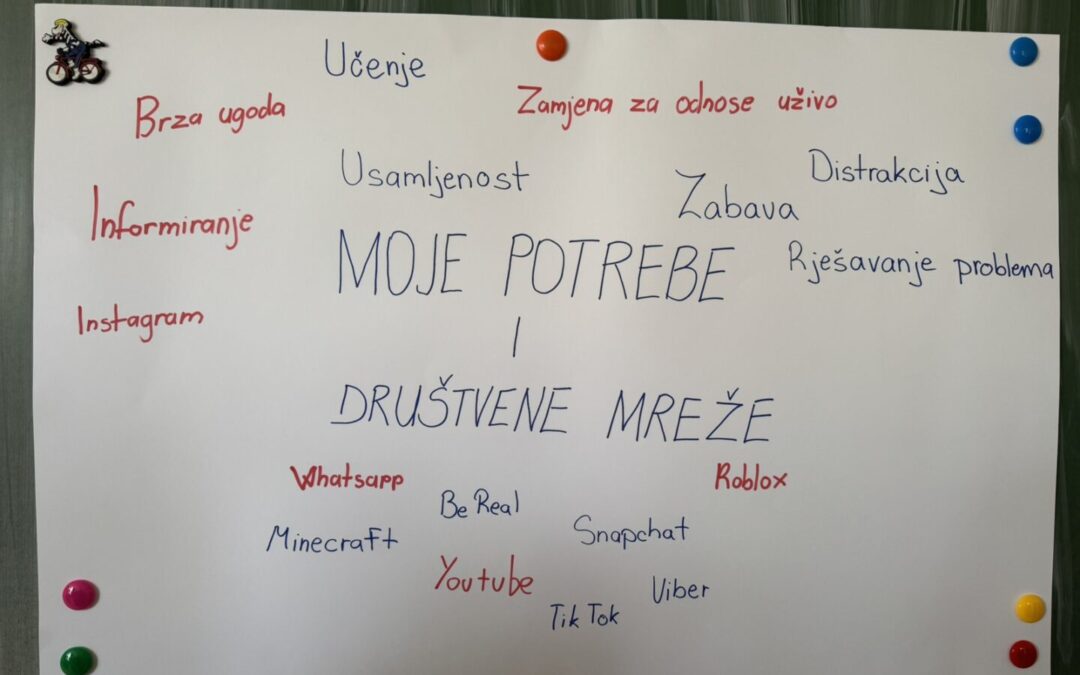 Učenje
Brza ugoda
Zamjena za odnose uživo
Usamljenost
Distrakcija
Zabava
Informiranje
MOJE POTREBE
Rješavanje problema
I
Instagram
DRUŠTVENE MREŽE
Whatsapp
Roblox
Be Real
Minecraft
Snapchat
Youtube
Viber
Tik Tok